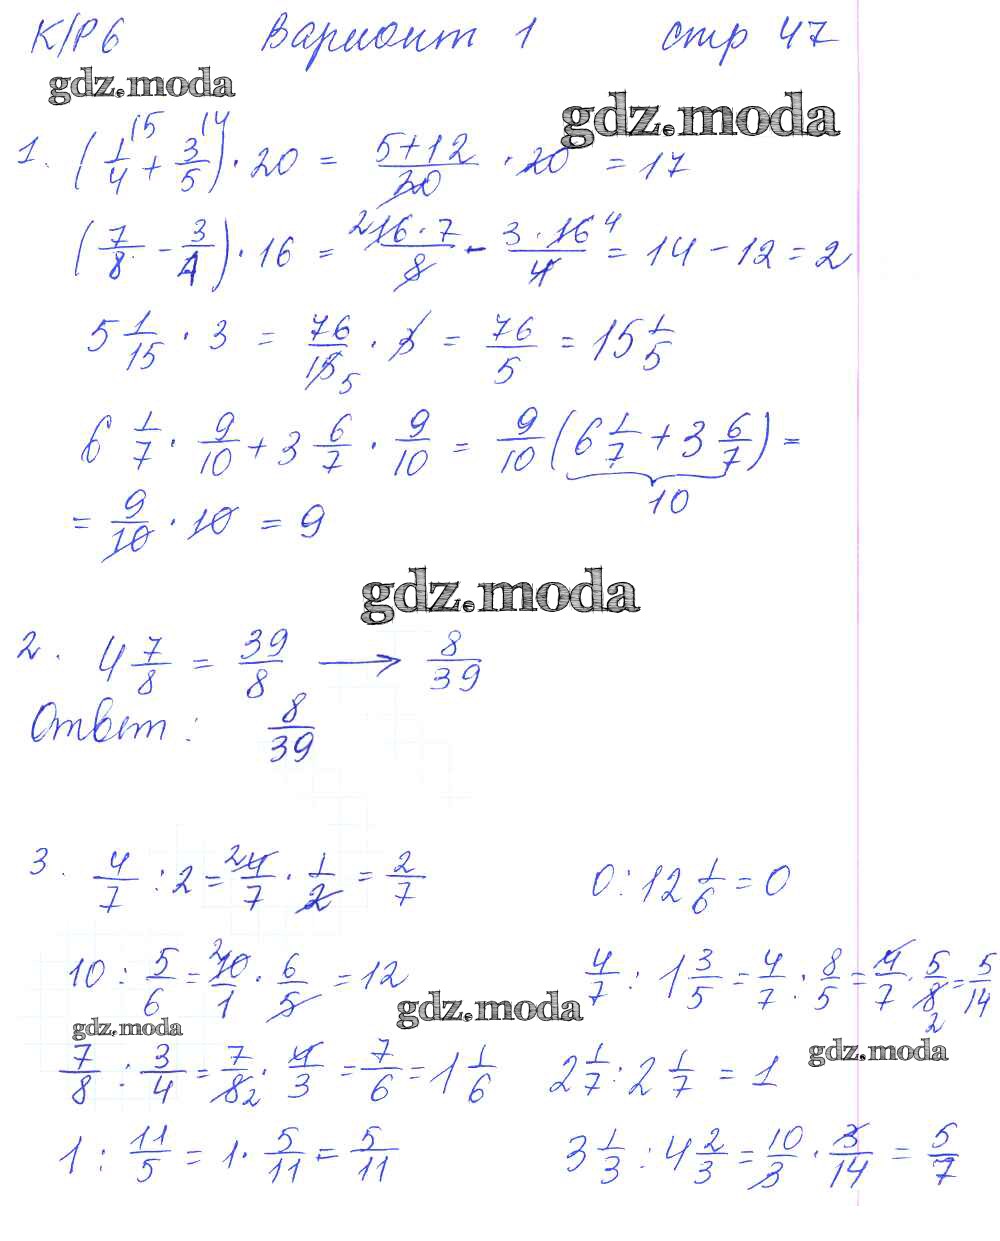 К/Р 6 Вариант 1 стр 47
gdz.moda
gdz.moda
1. (1/4 (5 + 3/5 (4) · 20 = 5+12/20 · 20 = 17
(7/8 - 3/4) · 16 = 2 16·7/8 - 3·16 4/4 = 14 - 12 = 2
5 1/15 · 3 = 76/15 5 · 3 = 76/5 = 15 1/5
6 1/7 · 9/10 + 3 6/7 · 9/10 = 9/10 (6 1/7 + 3 6/7) =
10
= 9/10 · 10 = 9
gdz.moda
2. 4 7/8 = 39/8 → 8/39
Ответ: 8/39
3. 4/7 : 2 = 2 4/7 · 1/2 = 2/7 0 : 12 1/6 = 0
10 : 5/6 = 2 10/1 · 6/5 = 12 4/7 : 1 3/5 = 4/7 : 8/5 = 4/7 · 5/8 2 = 5/14
gdz.moda
gdz.moda
gdz.moda
7/8 : 3/4 = 7/8 2 · 4/3 = 7/6 = 1 1/6 2 1/7 : 2 1/7 = 1
1 : 11/5 = 1 · 5/11 = 5/11 3 1/3 : 4 2/3 = 10/3 · 3/14 = 5/7